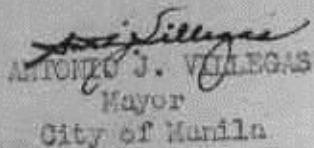 Antº J. Villegas
ANTONIO J. VILLEGAS
Mayor
City of Manila